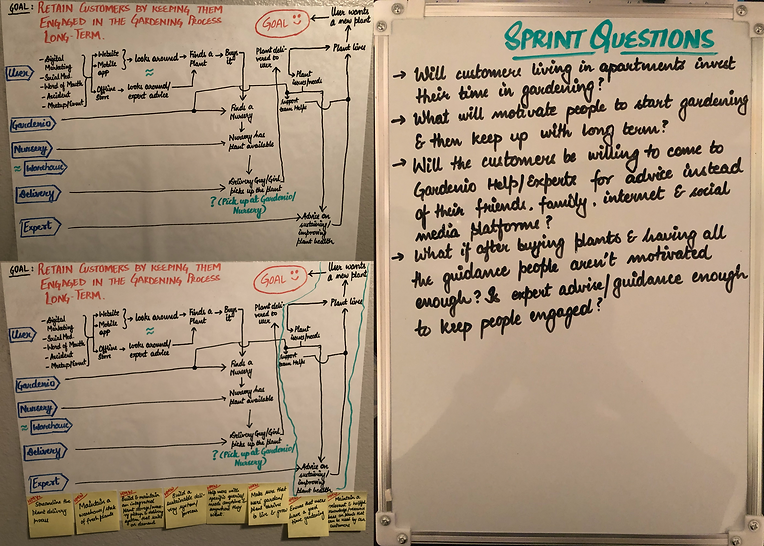 GOAL: RETAIN CUSTOMERS BY KEEPING THEM
ENGAGED IN THE GARDENING PROCESS
LONG-TERM.
GOAL
User wants
a new plant
User
- Digital
Marketing
- Social Med.
- Word of Mouth
- Accident
- Meetup/Event
Website
Mobile
app
Offline
Store
Looks around
≈
Looks around/
expert advice
Finds a
Plant
Buys
it
Plant deli-
vered to
user
Plant
issues/needs
Plant Lives
Support
team Helps
Gardenio
Finds a
Nursery
Nursery
Nursery has
plant available
≈ Warehouse
Delivery
Delivery Guy/Girl
pick up the plant
? (Pick up at Gardenio/
Nursery)
Expert
Advice on
sustaining/
improving
plant health
GOAL: RETAIN CUSTOMERS BY KEEPING THEM
ENGAGED IN THE GARDENING PROCESS
LONG-TERM.
GOAL
User wants
a new plant
User
- Digital
Marketing
- Social Med.
- Word of Mouth
- Accident
- Meetup/Event
Website
Mobile
app
Offline
Store
Looks around
≈
Looks around/
expert advice
Finds a
Plant
Buys
it
Plant deli-
vered to
user
Plant
issues/needs
Plant Lives
Support
team Helps
Gardenio
Finds a
Nursery
Nursery
Nursery has
plant available
≈ Warehouse
Delivery
Delivery Guy/Girl
pick up the plant
? (Pick up at Gardenio/
Nursery)
Expert
Advice on
sustaining/
improving
plant health
Streamline the
plant delivery
process
Maintain a
warehouse/stock
of fresh plants
Build a
sustainable deli-
very system/process
SPRINT QUESTIONS
→ Will customers living in apartments invest
their time in gardening?
→ What will motivate people to start gardening
& then keep up with long term?
→ Will the customers be willing to come to
Gardenio Help/Experts for advice instead
of their friends, family, internet & social
media platforms?
→ What if after buying plants & having all
the guidance people aren't motivated
enough? Is expert advise/guidance enough
to keep people engaged?